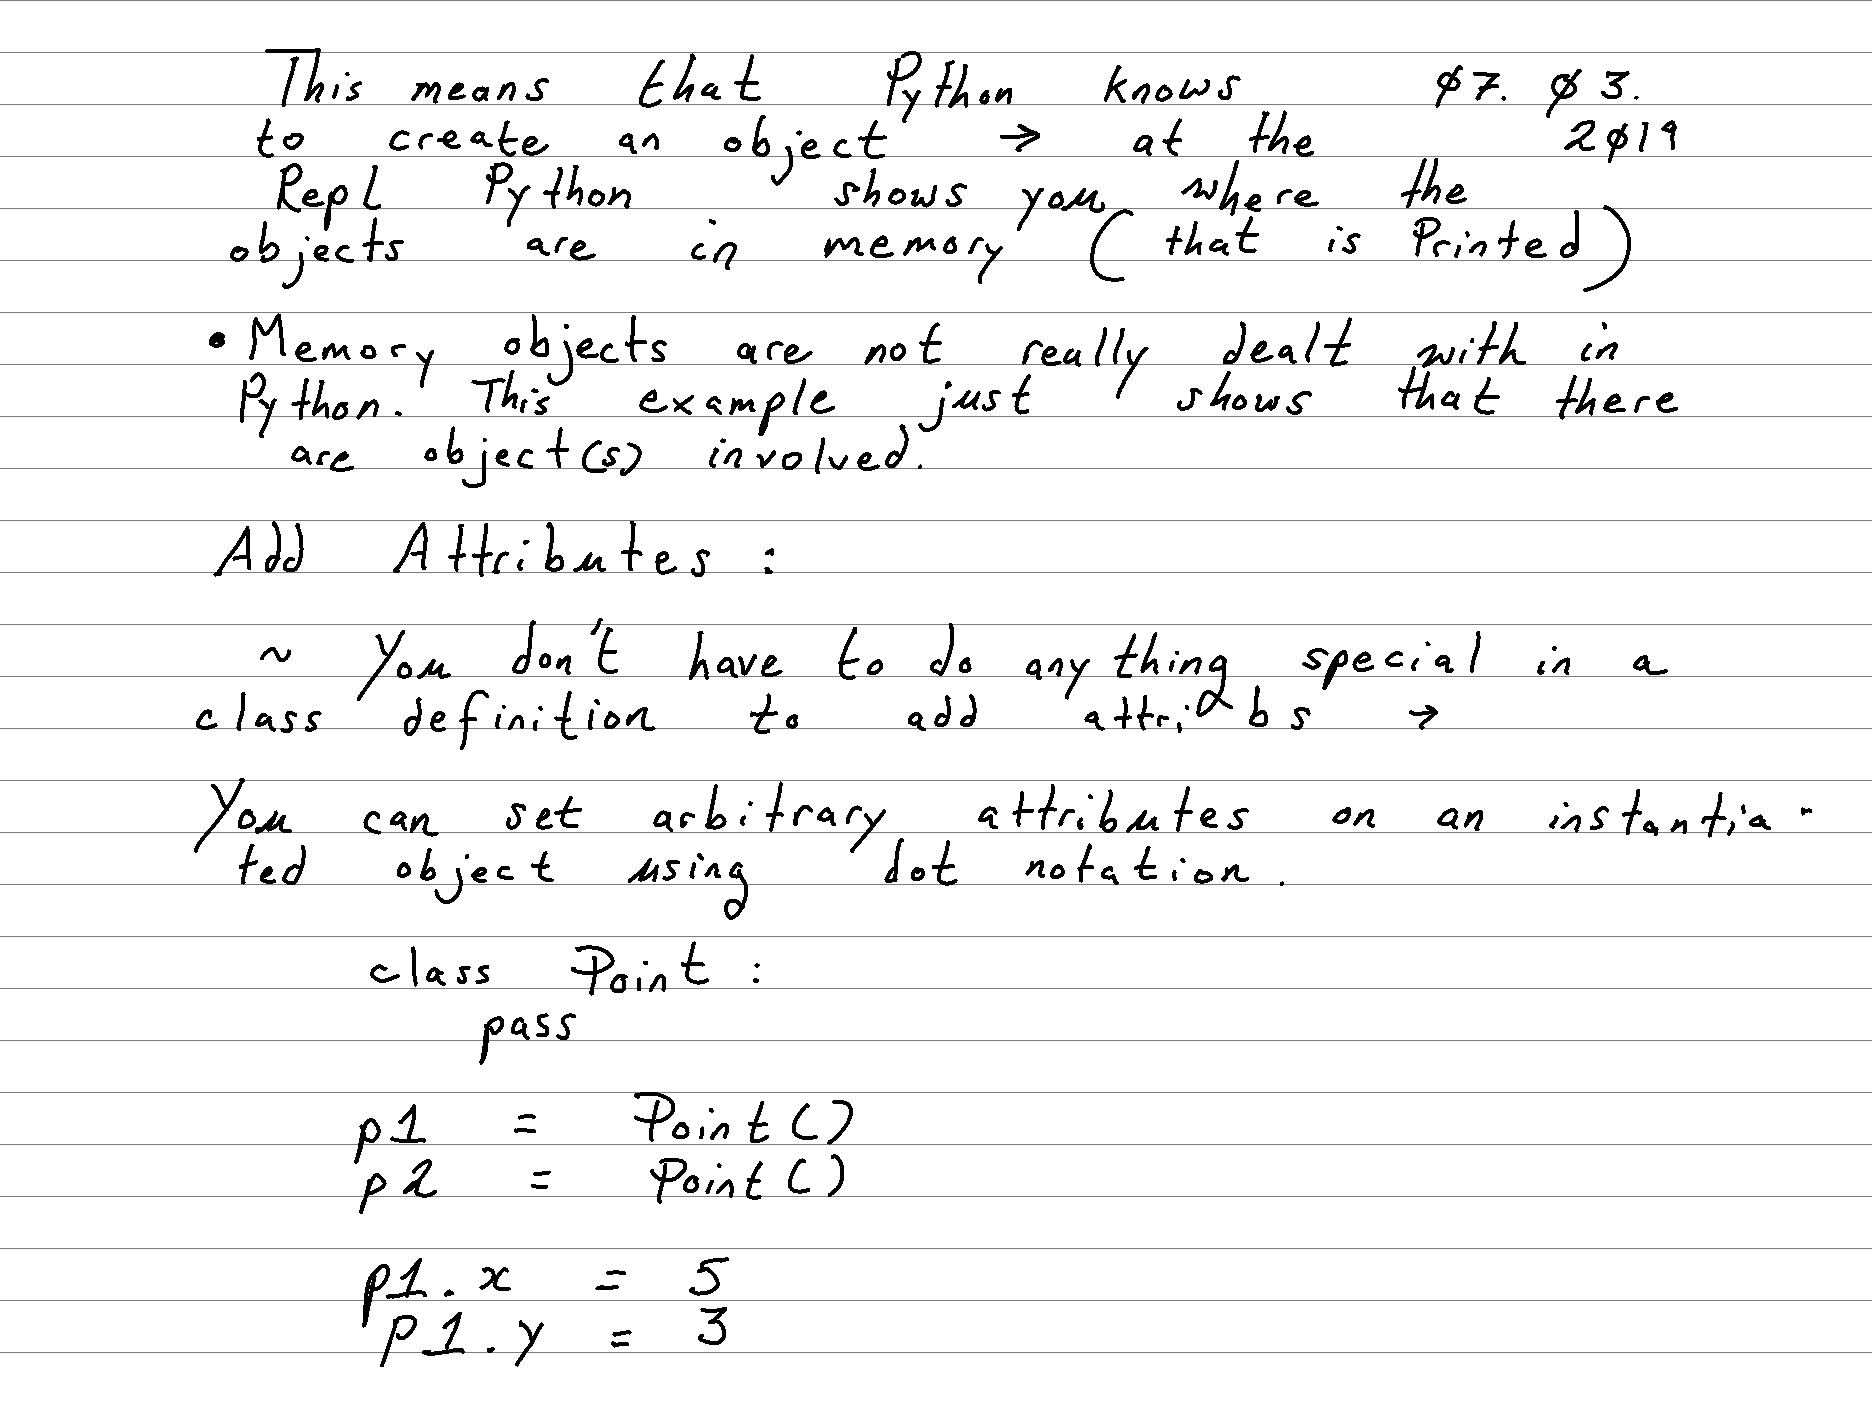 This means that Python knows ø7. ø3.
to create an object → at the 2ø19
Repl Python shows you where the
objects are in memory (that is Printed)
• Memory objects are not really dealt with in
Python. This example just shows that there
are object(s) involved.
Add Attributes :
~ You don't have to do anything special in a
class definition to add attribs →
You can set arbitrary attributes on an instantia-
ted object using dot notation.
class Point :
pass
p1 = Point()
p2 = Point()
p1.x = 5
p1.y = 3